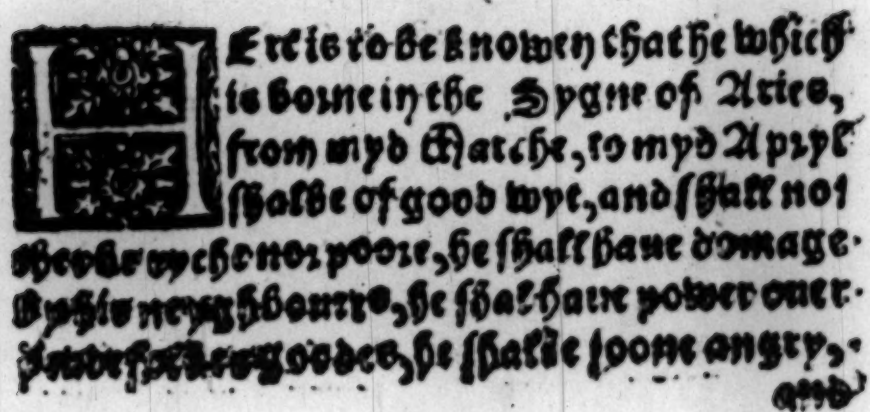 HEre is to be knowen that he which
is borne in the Sygne of Aries,
from myd Marche, to myd Apryl
shalbe of good wyt, and shall not
rychenor poore, he shall haue domage
By his neyghbours, he shal haue power ouer
goodes, he shalbe soone angry,
and